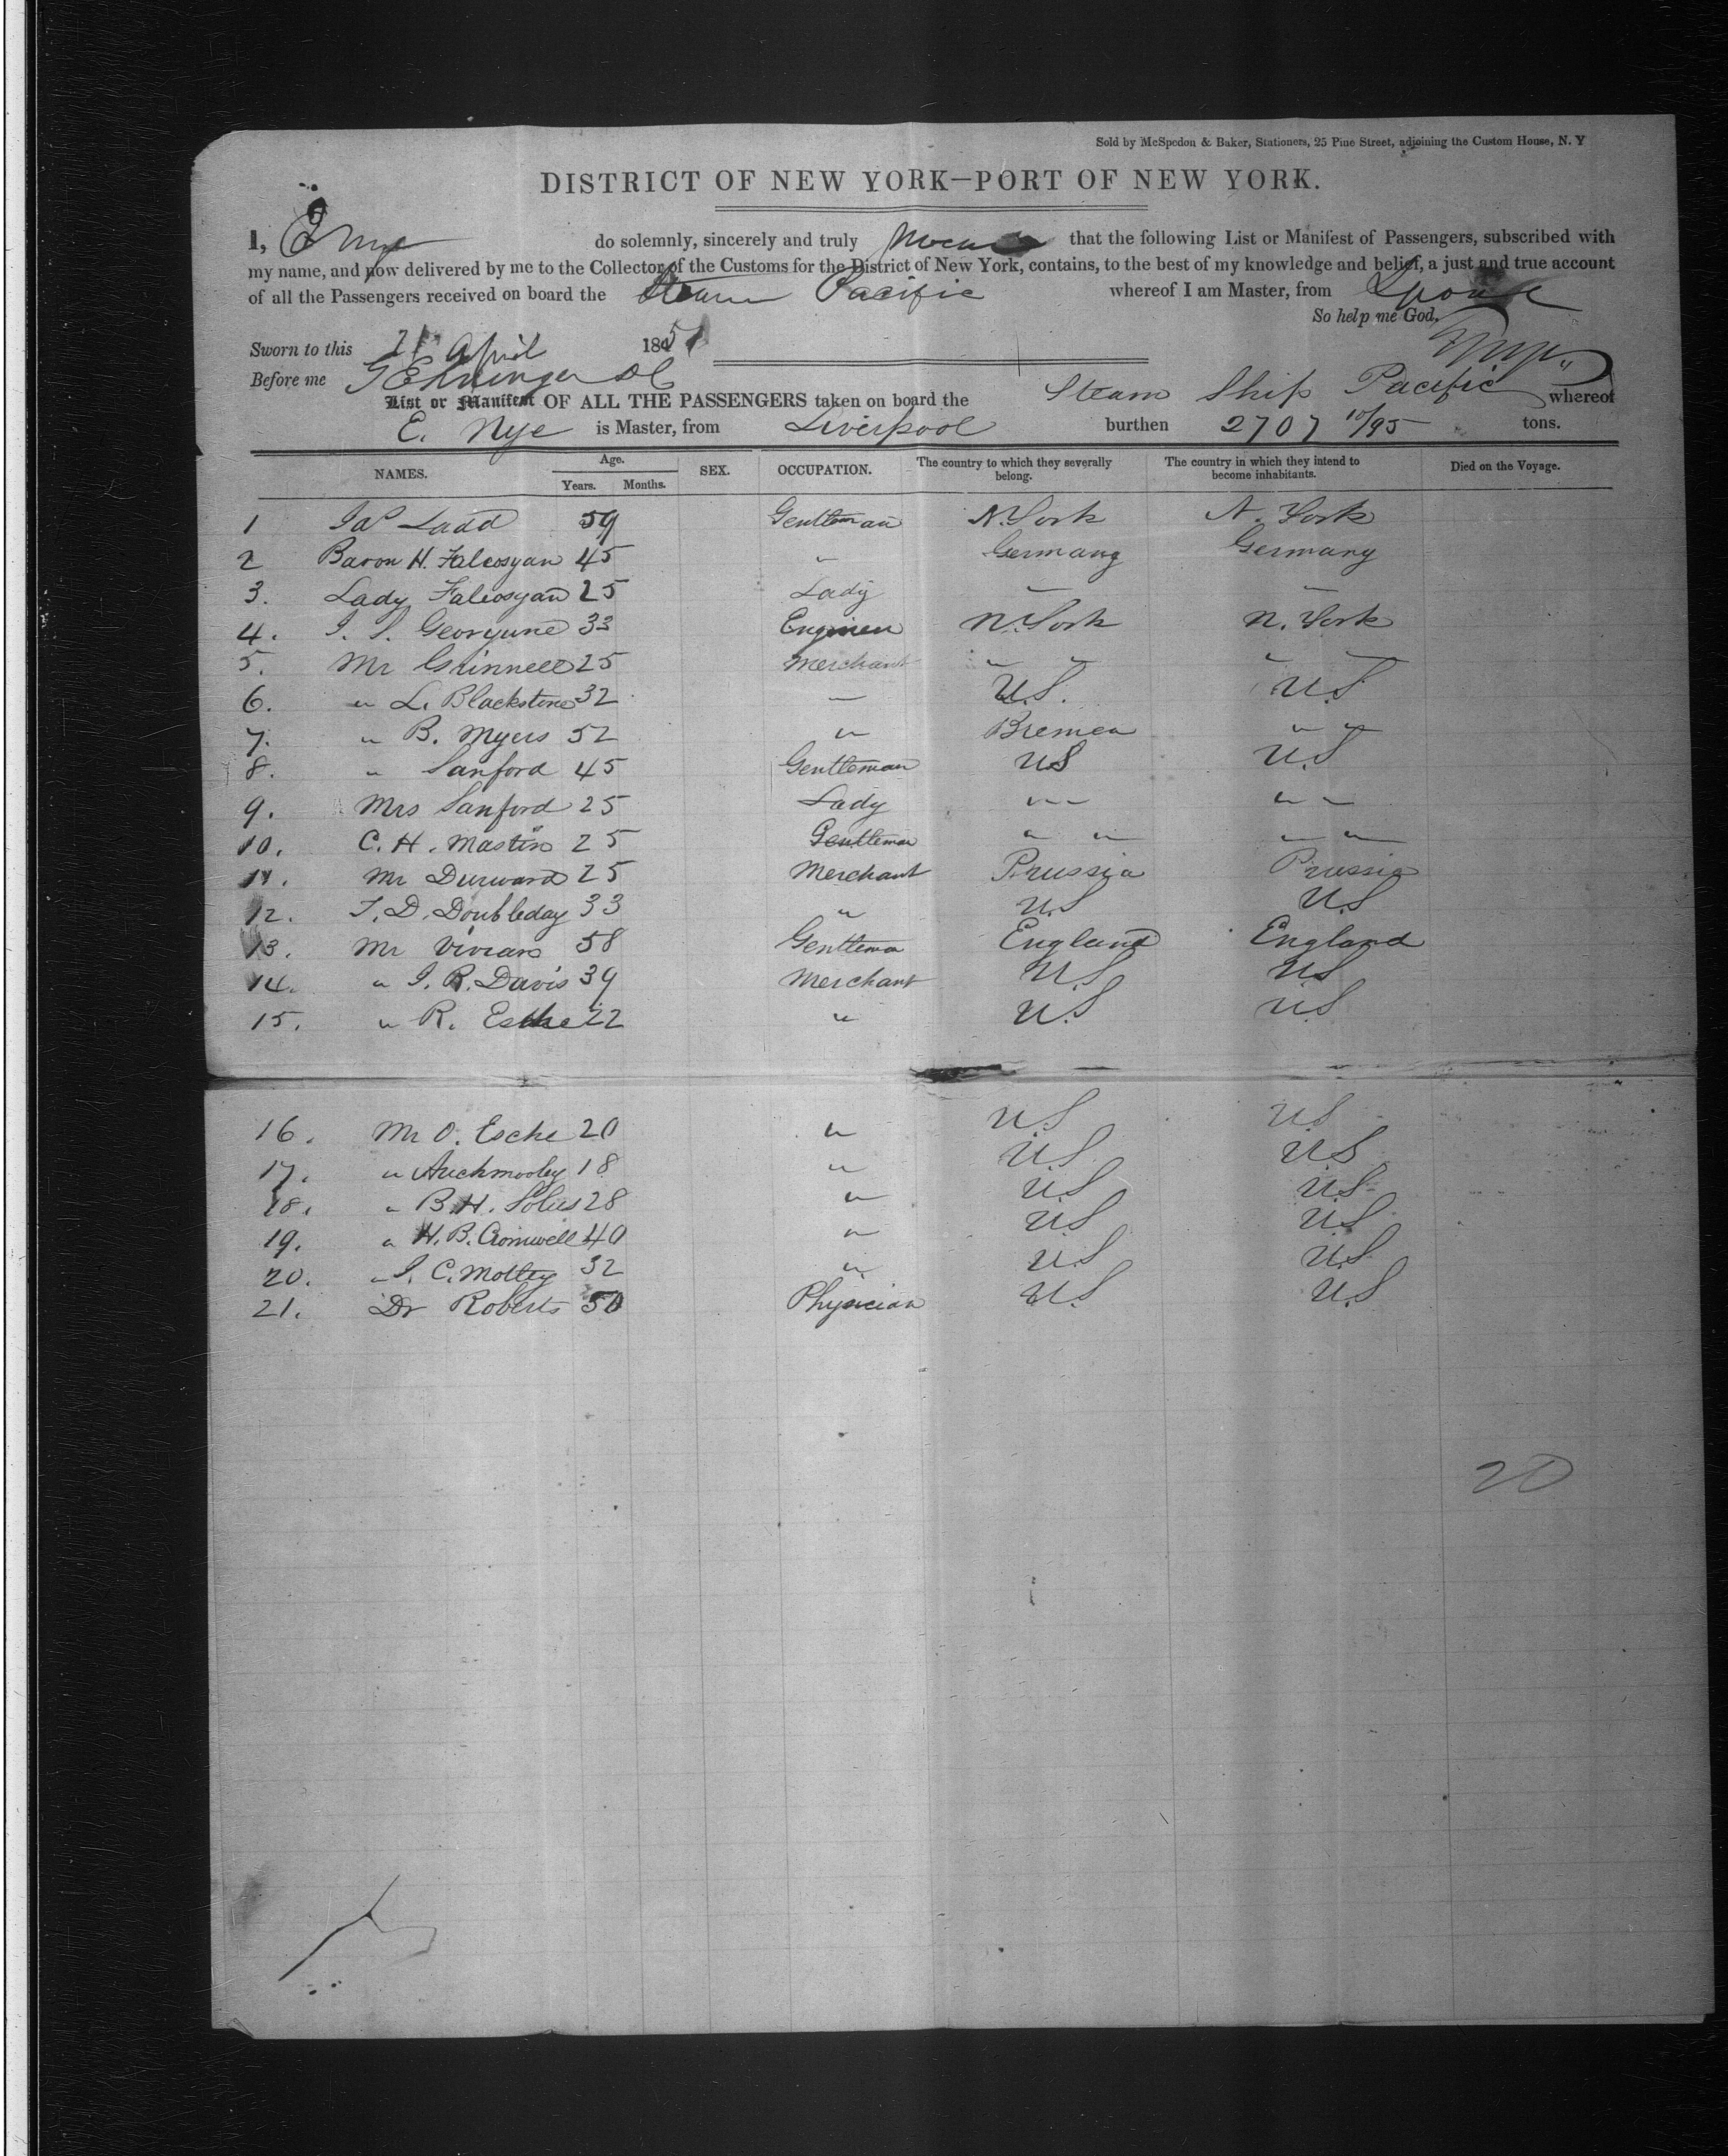 Sold by McSpedon & Baker, Stationers, 25 Pine Street, adjoining the Custom House, N. Y
DISTRICT OF NEW YORK—PORT OF NEW YORK.
I, E Nye do solemnly, sincerely and truly that the following List or Manifest of Passengers, subscribed with
my name, and now delivered by me to the Collector of the Customs for the District of New York, contains, to the best of my knowledge and belief, a just and true account
of all the Passengers received on board the Steam Pacific whereof I am Master, from Lpool
So help me God.
Sworn to this 21 April 1851
Before me
List or Manifest OF ALL THE PASSENGERS taken on board the Steam Ship Pacific whereof
E. Nye is Master, from Liverpool burthen 2707 10/95 tons.
NAMES. Age. Years. Months. SEX. OCCUPATION. The country to which they severally belong. The country in which they intend to become inhabitants. Died on the Voyage.
1 Jas Ladd 59 Gentleman N. York N. York
2 Baron H. Falcosyan 45 " Germany Germany
3. Lady Falcosyan 25 Lady " "
4. J. S. Georgune 33 Engineer N. York N. York
5. Mr Grinnell 25 Merchant " " " "
6. " L. Blackstone 32 " U.S. U.S
7. " B. Myers 52 " Bremen " "
8. " Sanford 45 Gentleman US U.S
9. Mrs Sanford 25 Lady " " " "
10. C. H. Mastin 25 Gentleman " " " "
11. Mr Durward 25 Merchant Prussia Prussia
12. T. D. Doubleday 33 " U.S U.S
13. Mr Vivian 58 Gentleman England England
14. " J. R. Davis 39 Merchant U.S US
15. " R. Esche 22 " U.S U.S
16. Mr O. Esche 20 " U.S U.S
17. " Auchmooley 18 " U.S US
18. " B. H. Solus 28 " U.S U.S
19. " H. B. Cromwell 40 " U.S U.S
20. " J. C. Motley 32 " U.S U.S
21. Dr Roberts 50 Physician U.S U.S
20